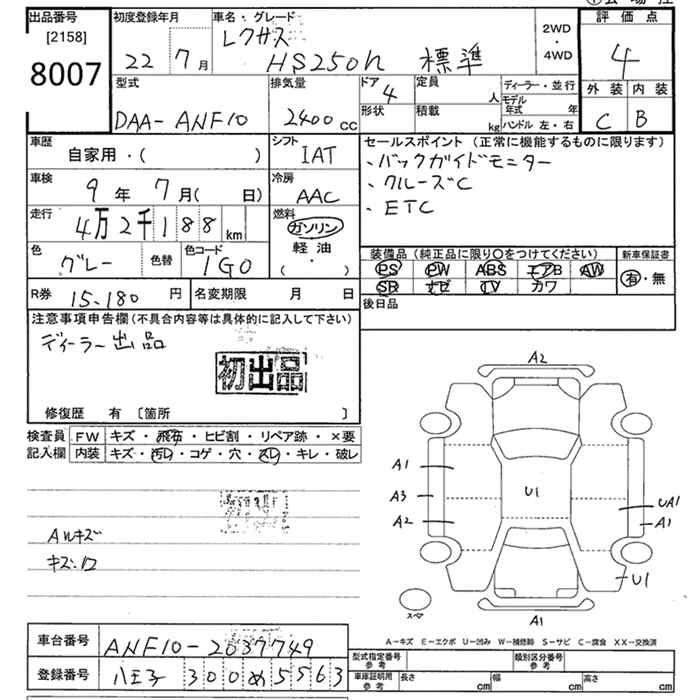 出品番号 初度登録年月 車名・グレード 評価点
[2158]
8007
22 7月 レクサス HS250h 標準 2WD・4WD 4
型式 排気量 ドア 定員 ディーラー・並行 外装 内装
DAA-ANF10 2400cc 4 人 モデル年式 年 C B
形状 積載 kg ハンドル 左・右
車歴 自家用・( ) シフト IAT
セールスポイント(正常に機能するものに限ります)
、バックガイドモニター
、クルーズC
、ETC
車検 9年 7月( 日) 冷房 AAC
走行 4万2千188km 燃料 ガソリン 軽油 ( ・ )
色 グレー 色替 色コード 1G0
装備品(純正品に限り○をつけてください) 新車保証書
PS PW ABS エアB AW 有・無
SR ナビ TV カワ
R券 15,180円 名変期限 月 日
後日品
注意事項申告欄(不具合内容等は具体的に記入して下さい)
ディーラー出品
初出品
修復歴 有 [箇所 ]
検査員 FW キズ・飛石・ヒビ割・リペア跡・×要
記入欄 内装 キズ・汚レ・コゲ・穴・スレ・キレ・破レ
A2
A1
A3
A2
U1
UA1
A1
U1
A1
スペア
Aルキズ
キズ・ワ
A-キズ E-エクボ U-凹み W-補修跡 S-サビ C-腐食 XX-交換済
車台番号 ANF10-2037749
登録番号 八王子 300め5563
型式指定番号 参考 類別区分番号 参考
車庫証明用 参考 長さ cm 幅 cm 高さ cm